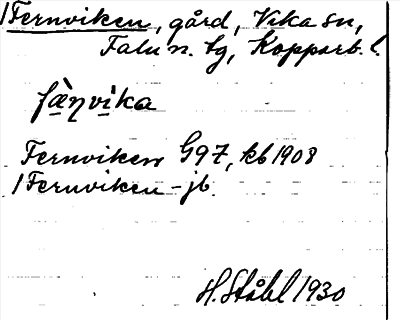 /Fernviken, gård, Vika sn,
Falu n. tg, Kopparb. l.
fæ̀ṇvi̱ka
Fernviken G97, kb 1908
/Fernviken - jb
H. Ståhl 1930